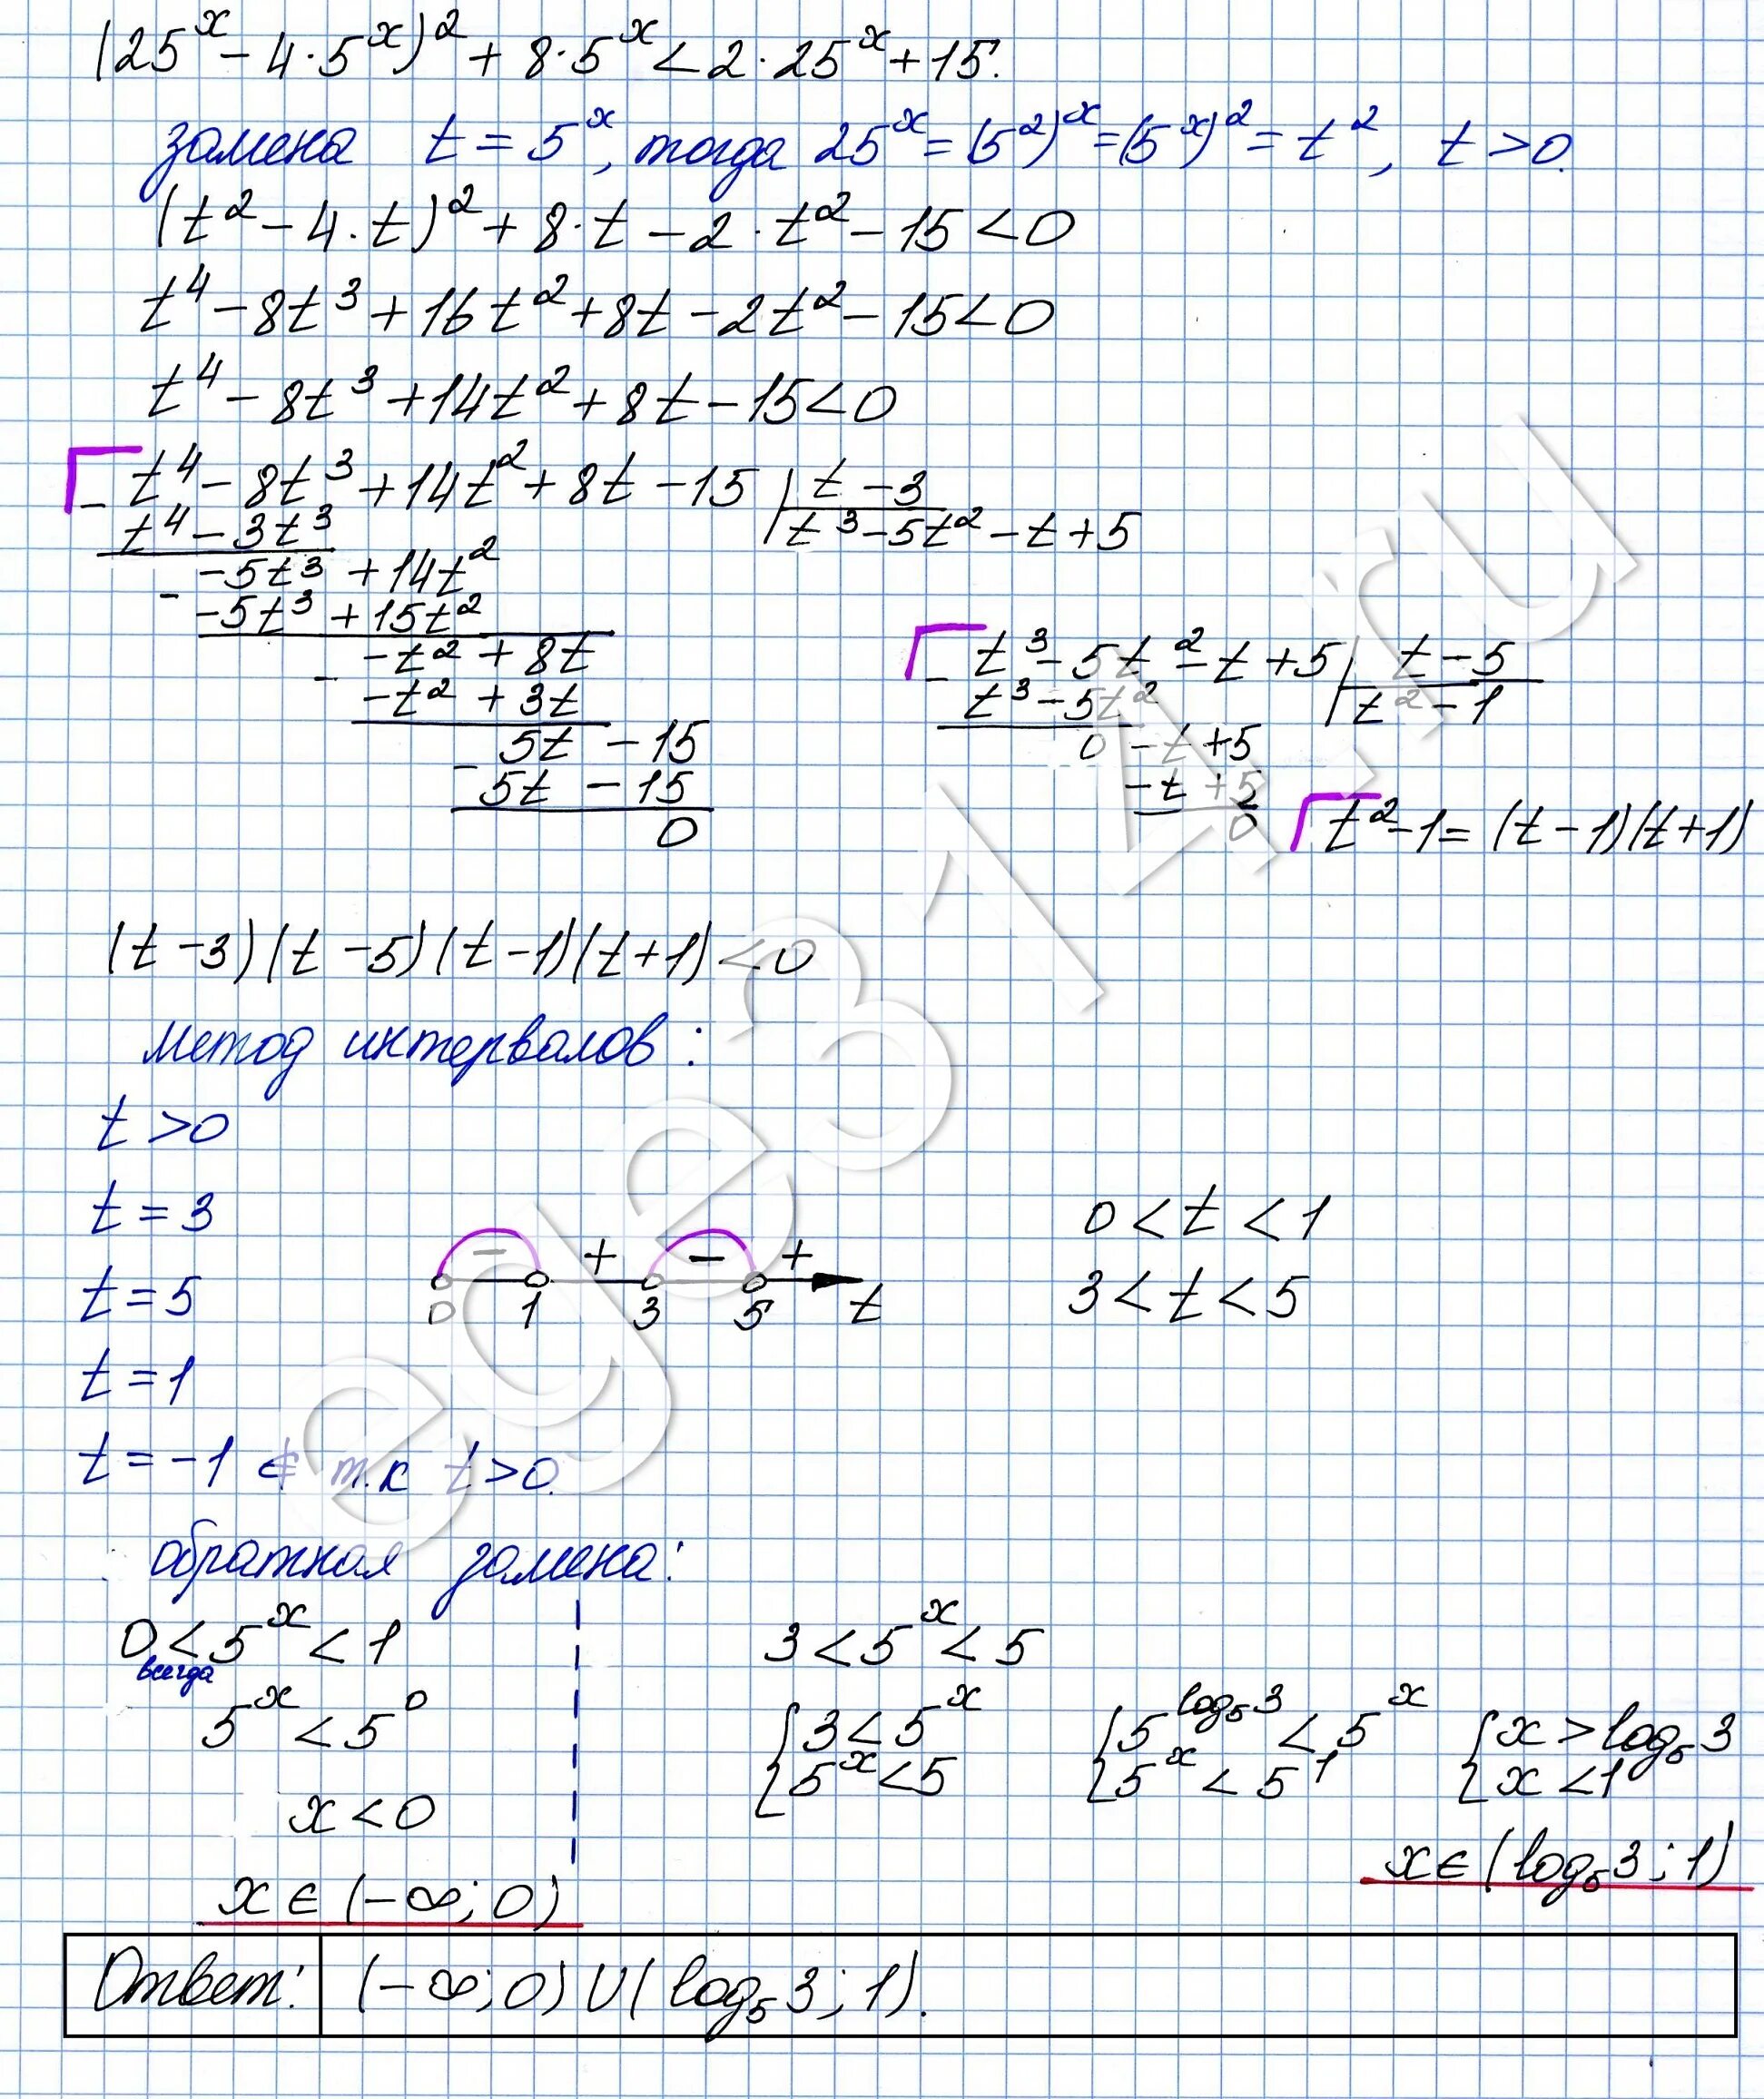 (25^x − 4·5^x)^2 + 8·5^x < 2·25^x + 15.
замена t = 5^x, тогда 25^x = (5^2)^x = (5^x)^2 = t^2, t > 0.
(t^2 − 4·t)^2 + 8·t − 2·t^2 − 15 < 0
t^4 − 8t^3 + 16t^2 + 8t − 2t^2 − 15 < 0
t^4 − 8t^3 + 14t^2 + 8t − 15 < 0
− t^4 − 8t^3 + 14t^2 + 8t − 15 | t − 3
t^4 − 3t^3 | t^3 − 5t^2 − t + 5
− −5t^3 + 14t^2
−5t^3 + 15t^2
− −t^2 + 8t
−t^2 + 3t
− 5t − 15
5t − 15
0
− t^3 − 5t^2 − t + 5 | t − 5
t^3 − 5t^2 | t^2 − 1
0 − t + 5
−t + 5
0
t^2 − 1 = (t − 1)(t + 1)
(t − 3)(t − 5)(t − 1)(t + 1) < 0
метод интервалов:
t > 0
t = 3
t = 5
t = 1
t = −1 ∉ т.к t > 0.
− + − +
0 1 3 5 t
0 < t < 1
3 < t < 5
обратная замена:
0 < 5^x < 1
всегда
5^x < 5^0
x < 0
x ∈ (−∞; 0)
3 < 5^x < 5
{ 3 < 5^x { 5^log₅3 < 5^x { x > log₅3
{ 5^x < 5 { 5^x < 5^1 { x < 1
x ∈ (log₅3; 1)
Ответ: (−∞; 0) ∪ (log₅3; 1).
ege314.ru